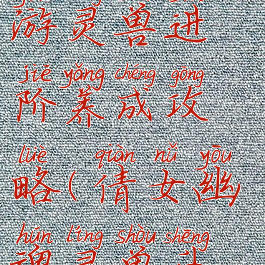 游灵兽进
jiē yǎng chéng gōng
阶养成攻
lüè qiàn nǚ yōu
略(倩女幽
hún líng shòu shēng
魂灵兽升